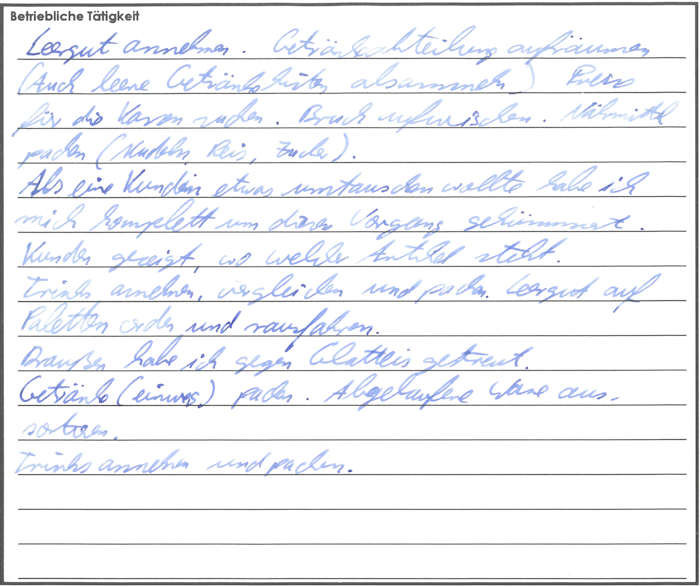 Betriebliche Tätigkeit
Leergut annehmen. Getränkeabteilung aufräumen
(Auch leere Getränkekisten absammeln) Preis
für die Kassen suchen. Bruch aufwischen. Nährmittel
packen (Nudeln, Reis, Zucker).
Als eine Kundin etwas umtauschen wollte habe ich
mich komplett um diesen Vorgang gekümmert.
Kunden gezeigt, wo welcher Artikel steht.
Trinks annehmen, vergleichen und packen. Leergut auf
Paletten ordnen und rausfahren.
Draußen habe ich gegen Glatteis gestreut.
Getränke (einweg) packen. Abgelaufene Ware aus-
sortieren.
Trinks annehmen und packen.